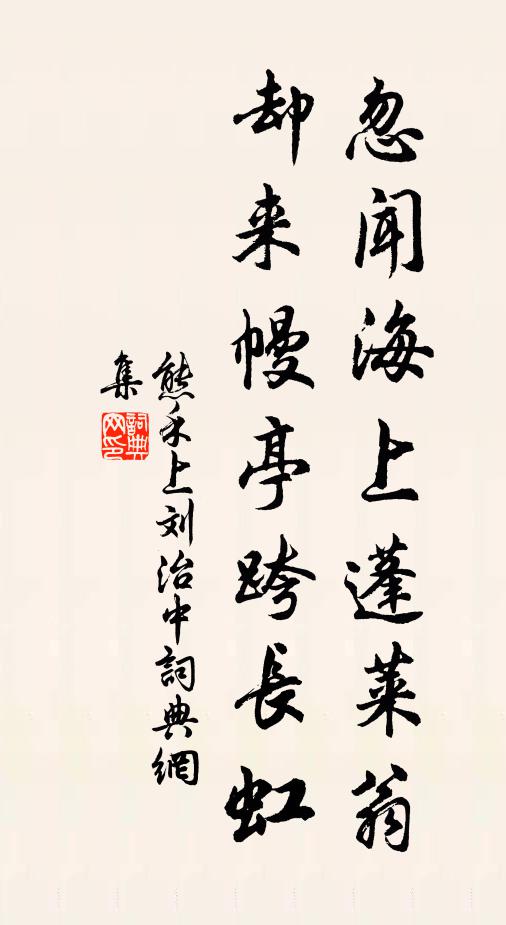 忽闻海上蓬莱翁
却来幔亭跨長虹
熊禾上刘治中詞典網
集
詞典网印